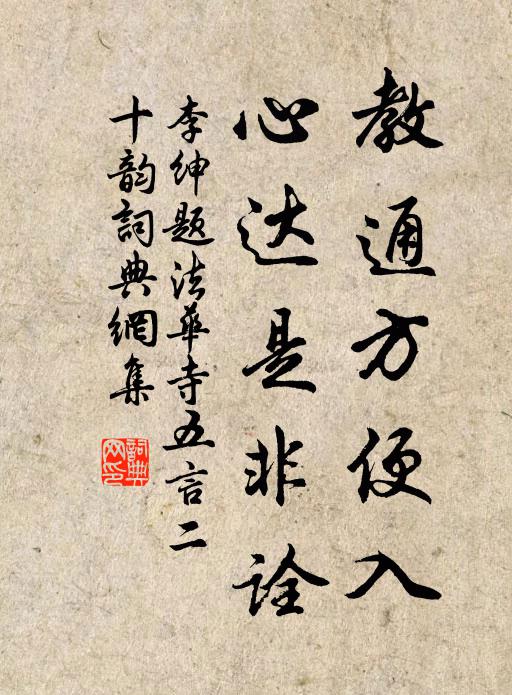 教通方便入
心达是非诠
李绅题法华寺五言二
十韵词典網集
詞典
网印